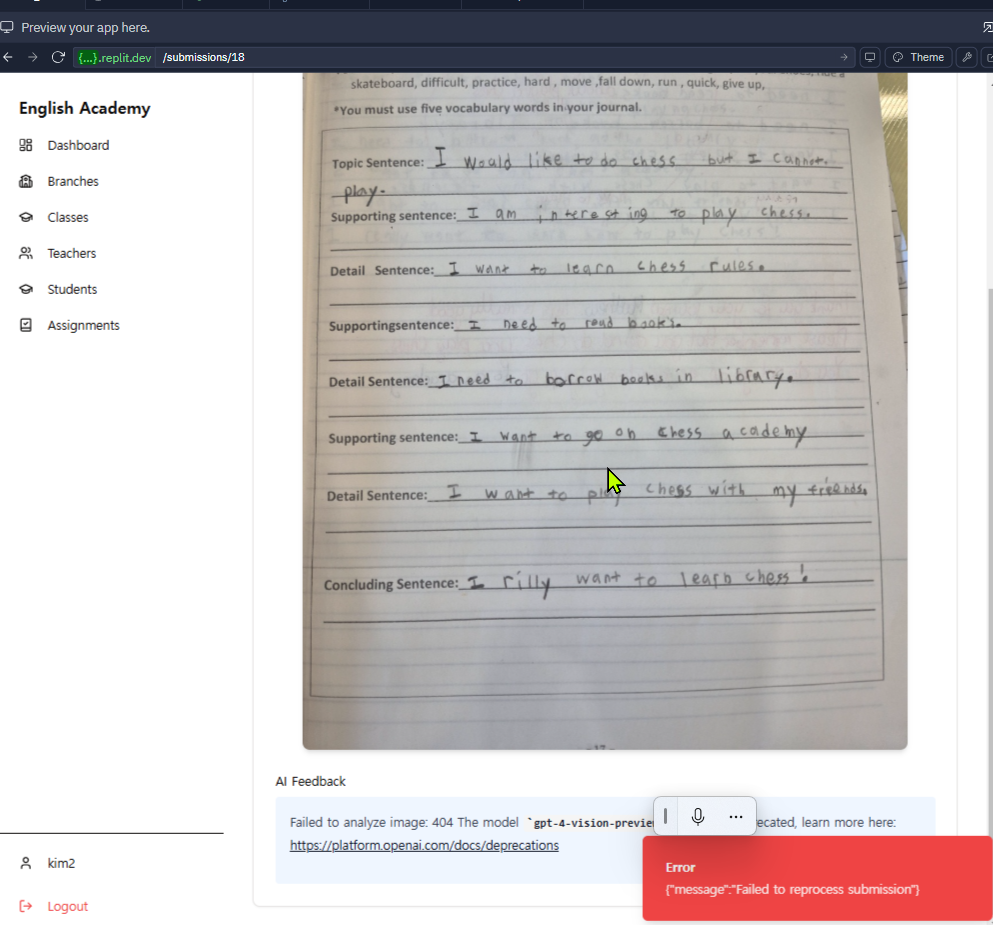 Preview your app here.
{...}.replit.dev /submissions/18
Theme
English Academy
Dashboard
Branches
Classes
Teachers
Students
Assignments
skateboard, difficult, practice, hard , move ,fall down, run , quick, give up,
*You must use five vocabulary words in your journal.
Topic Sentence: I Would like to do chess but I cannot.
play.
Supporting sentence: I am interesting to play chess.
Detail Sentence: I want to learn chess rules.
Supportingsentence: I need to read books.
Detail Sentence: I need to borrow books in library.
Supporting sentence: I want to go on chess academy
Detail Sentence: I want to play chess with my friends.
Concluding Sentence: I rilly want to learn chess!
AI Feedback
Failed to analyze image: 404 The model `gpt-4-vision-previe ecated, learn more here:
https://platform.openai.com/docs/deprecations
Error
{"message":"Failed to reprocess submission"}
kim2
Logout